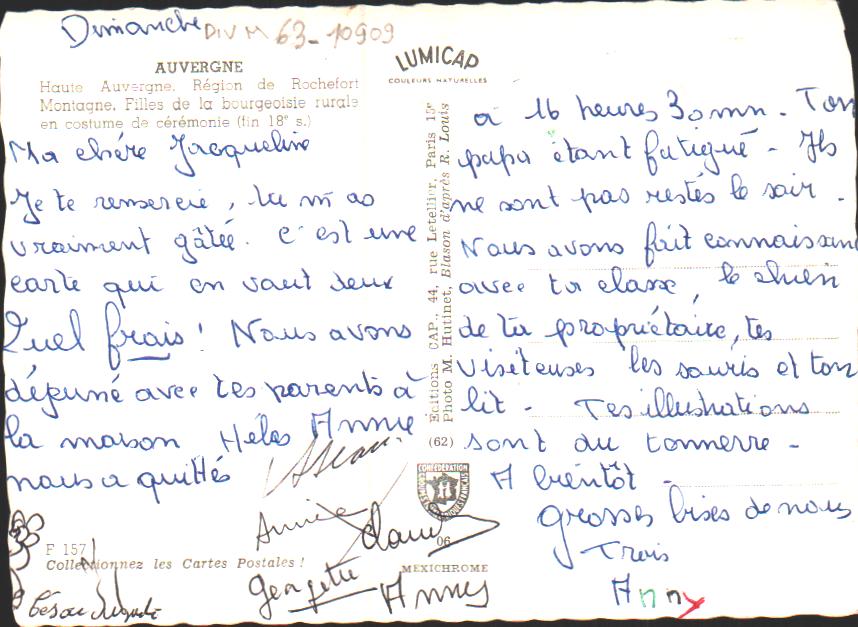 Dimanche DIV M 63-10909
AUVERGNE
Haute Auvergne. Région de Rochefort
Montagne. Filles de la bourgeoisie rurale
en costume de cérémonie (fin 18e s.)
LUMICAP
COULEURS NATURELLES
Ma chére Jacqueline
Je te remercie, tu m'as
vraiment gâtée. C'est une
carte qui en vaut deux
Quel frais! Nous avons
déjeuné avec tes parents à
la maison Hélas Anny
nous a quittés
à 16 heures 30 mn. Ton
papa étant fatigué - Ils
ne sont pas restés le soir.
Nous avons fait connaissance
avec ta classe, le chien
de ta propriétaire, tes
visiteuses les souris et ton
lit - Tes illustrations
sont du tonnerre -
A bientôt -
grosses bises de nous
Trois
Anny
Editions CAP., 44, rue Letellier, Paris 15e
Photo M. Hutinet, Blason d'après R. Louis
(62)
CONFÉDÉRATION
Annie
Georgette
Anny
F 157
Collectionnez les Cartes Postales!
06
MEXICHROME